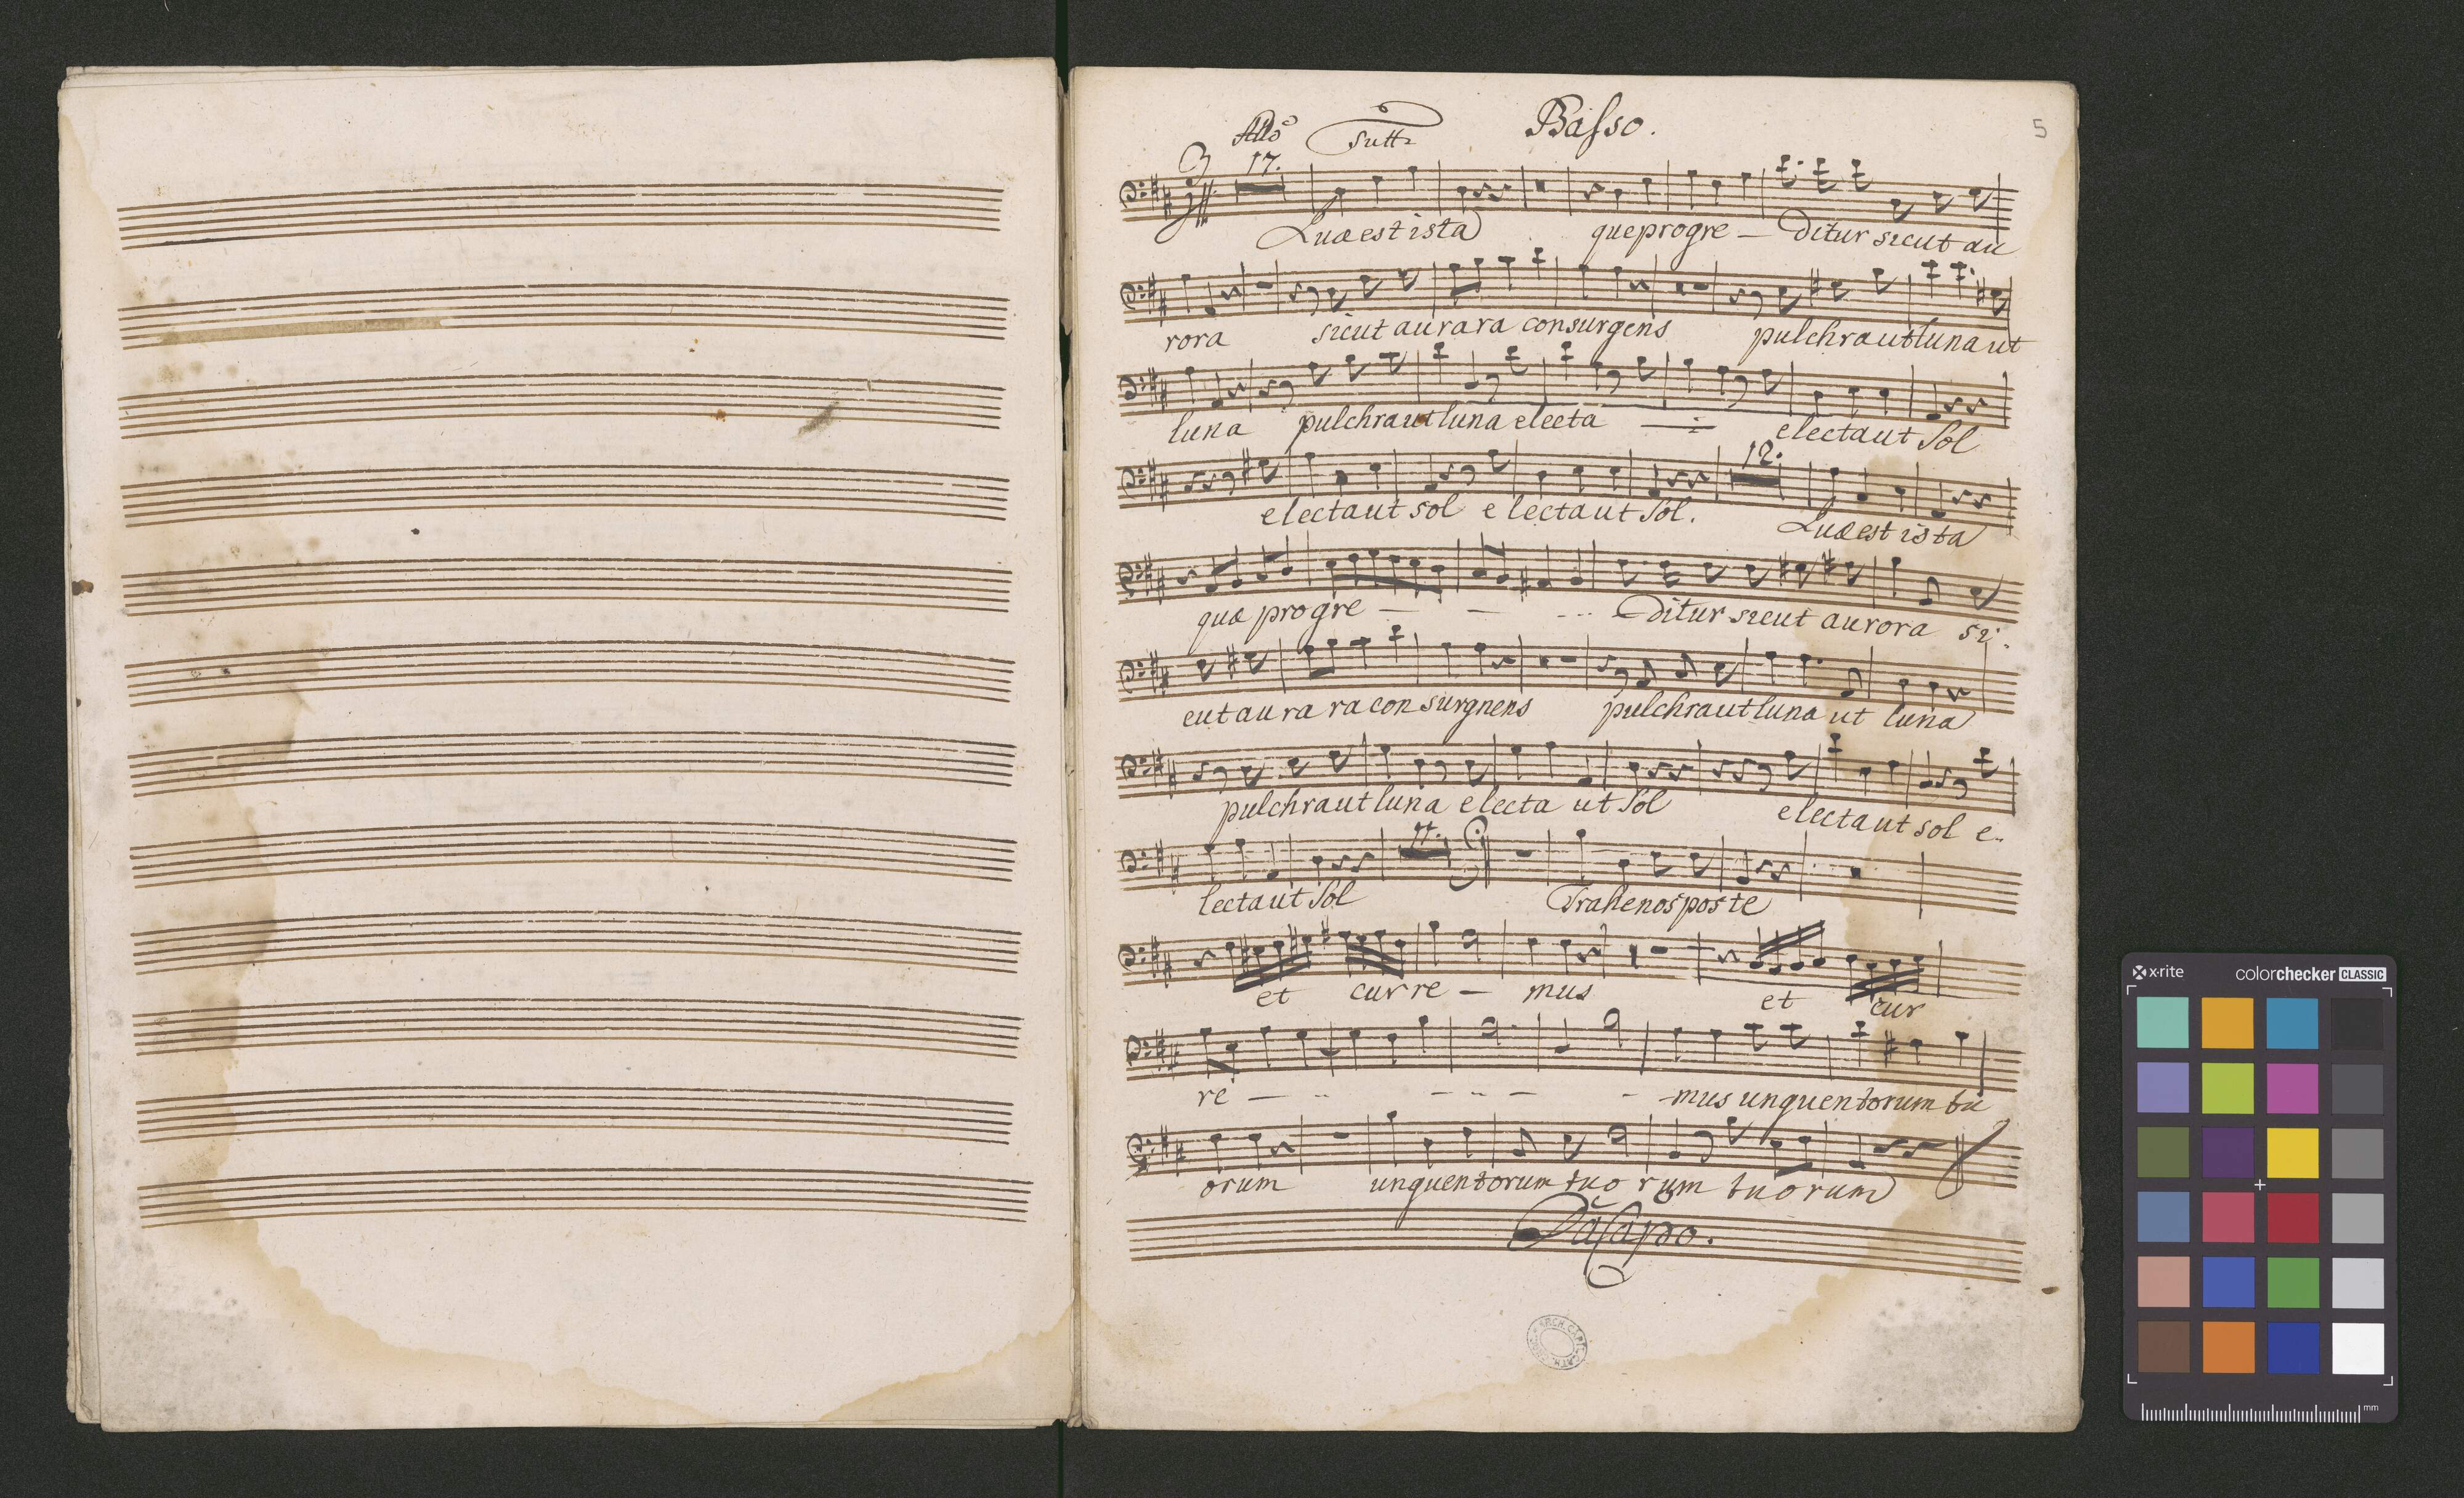 5
Allo Tutti Basso.
17.
Quæ est ista que progre - ditur sicut au
rora sicut aurara consurgens pulchra ut luna ut
luna pulchra ut luna electa electa ut Sol
12.
electa ut sol electa ut Sol. Quæ est ista
quæ progre - - - ditur sicut aurora si.
cut aurara consurgnens pulchra ut luna ut luna
pulchra ut luna electa ut Sol electa ut sol e-
11.
lecta ut Sol Trahe nos poste
et curre - mus et cur
re - - - mus unguentorum tu
orum unguentorum tuorum tuorum
Da Capo.
x-rite colorchecker CLASSIC
mm